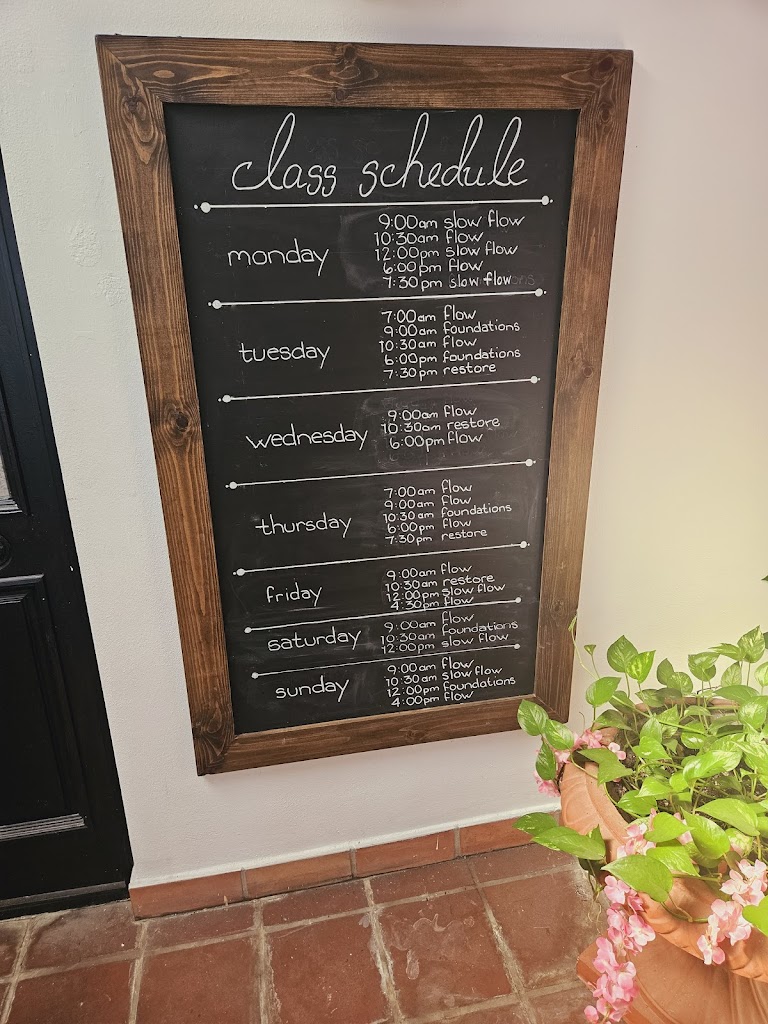 class schedule
monday
9:00am slow flow
10:30am flow
12:00pm slow flow
6:00pm flow
7:30pm slow flow
tuesday
7:00am flow
9:00am foundations
10:30am flow
6:00pm foundations
7:30pm restore
wednesday
9:00am flow
10:30am restore
6:00pm flow
thursday
7:00am flow
9:00am flow
10:30am foundations
6:00pm flow
7:30pm restore
friday
9:00am flow
10:30am restore
12:00pm slow flow
4:30pm flow
saturday
9:00am flow
10:30am foundations
12:00pm slow flow
sunday
9:00am flow
10:30am slow flow
12:00pm foundations
4:00pm flow